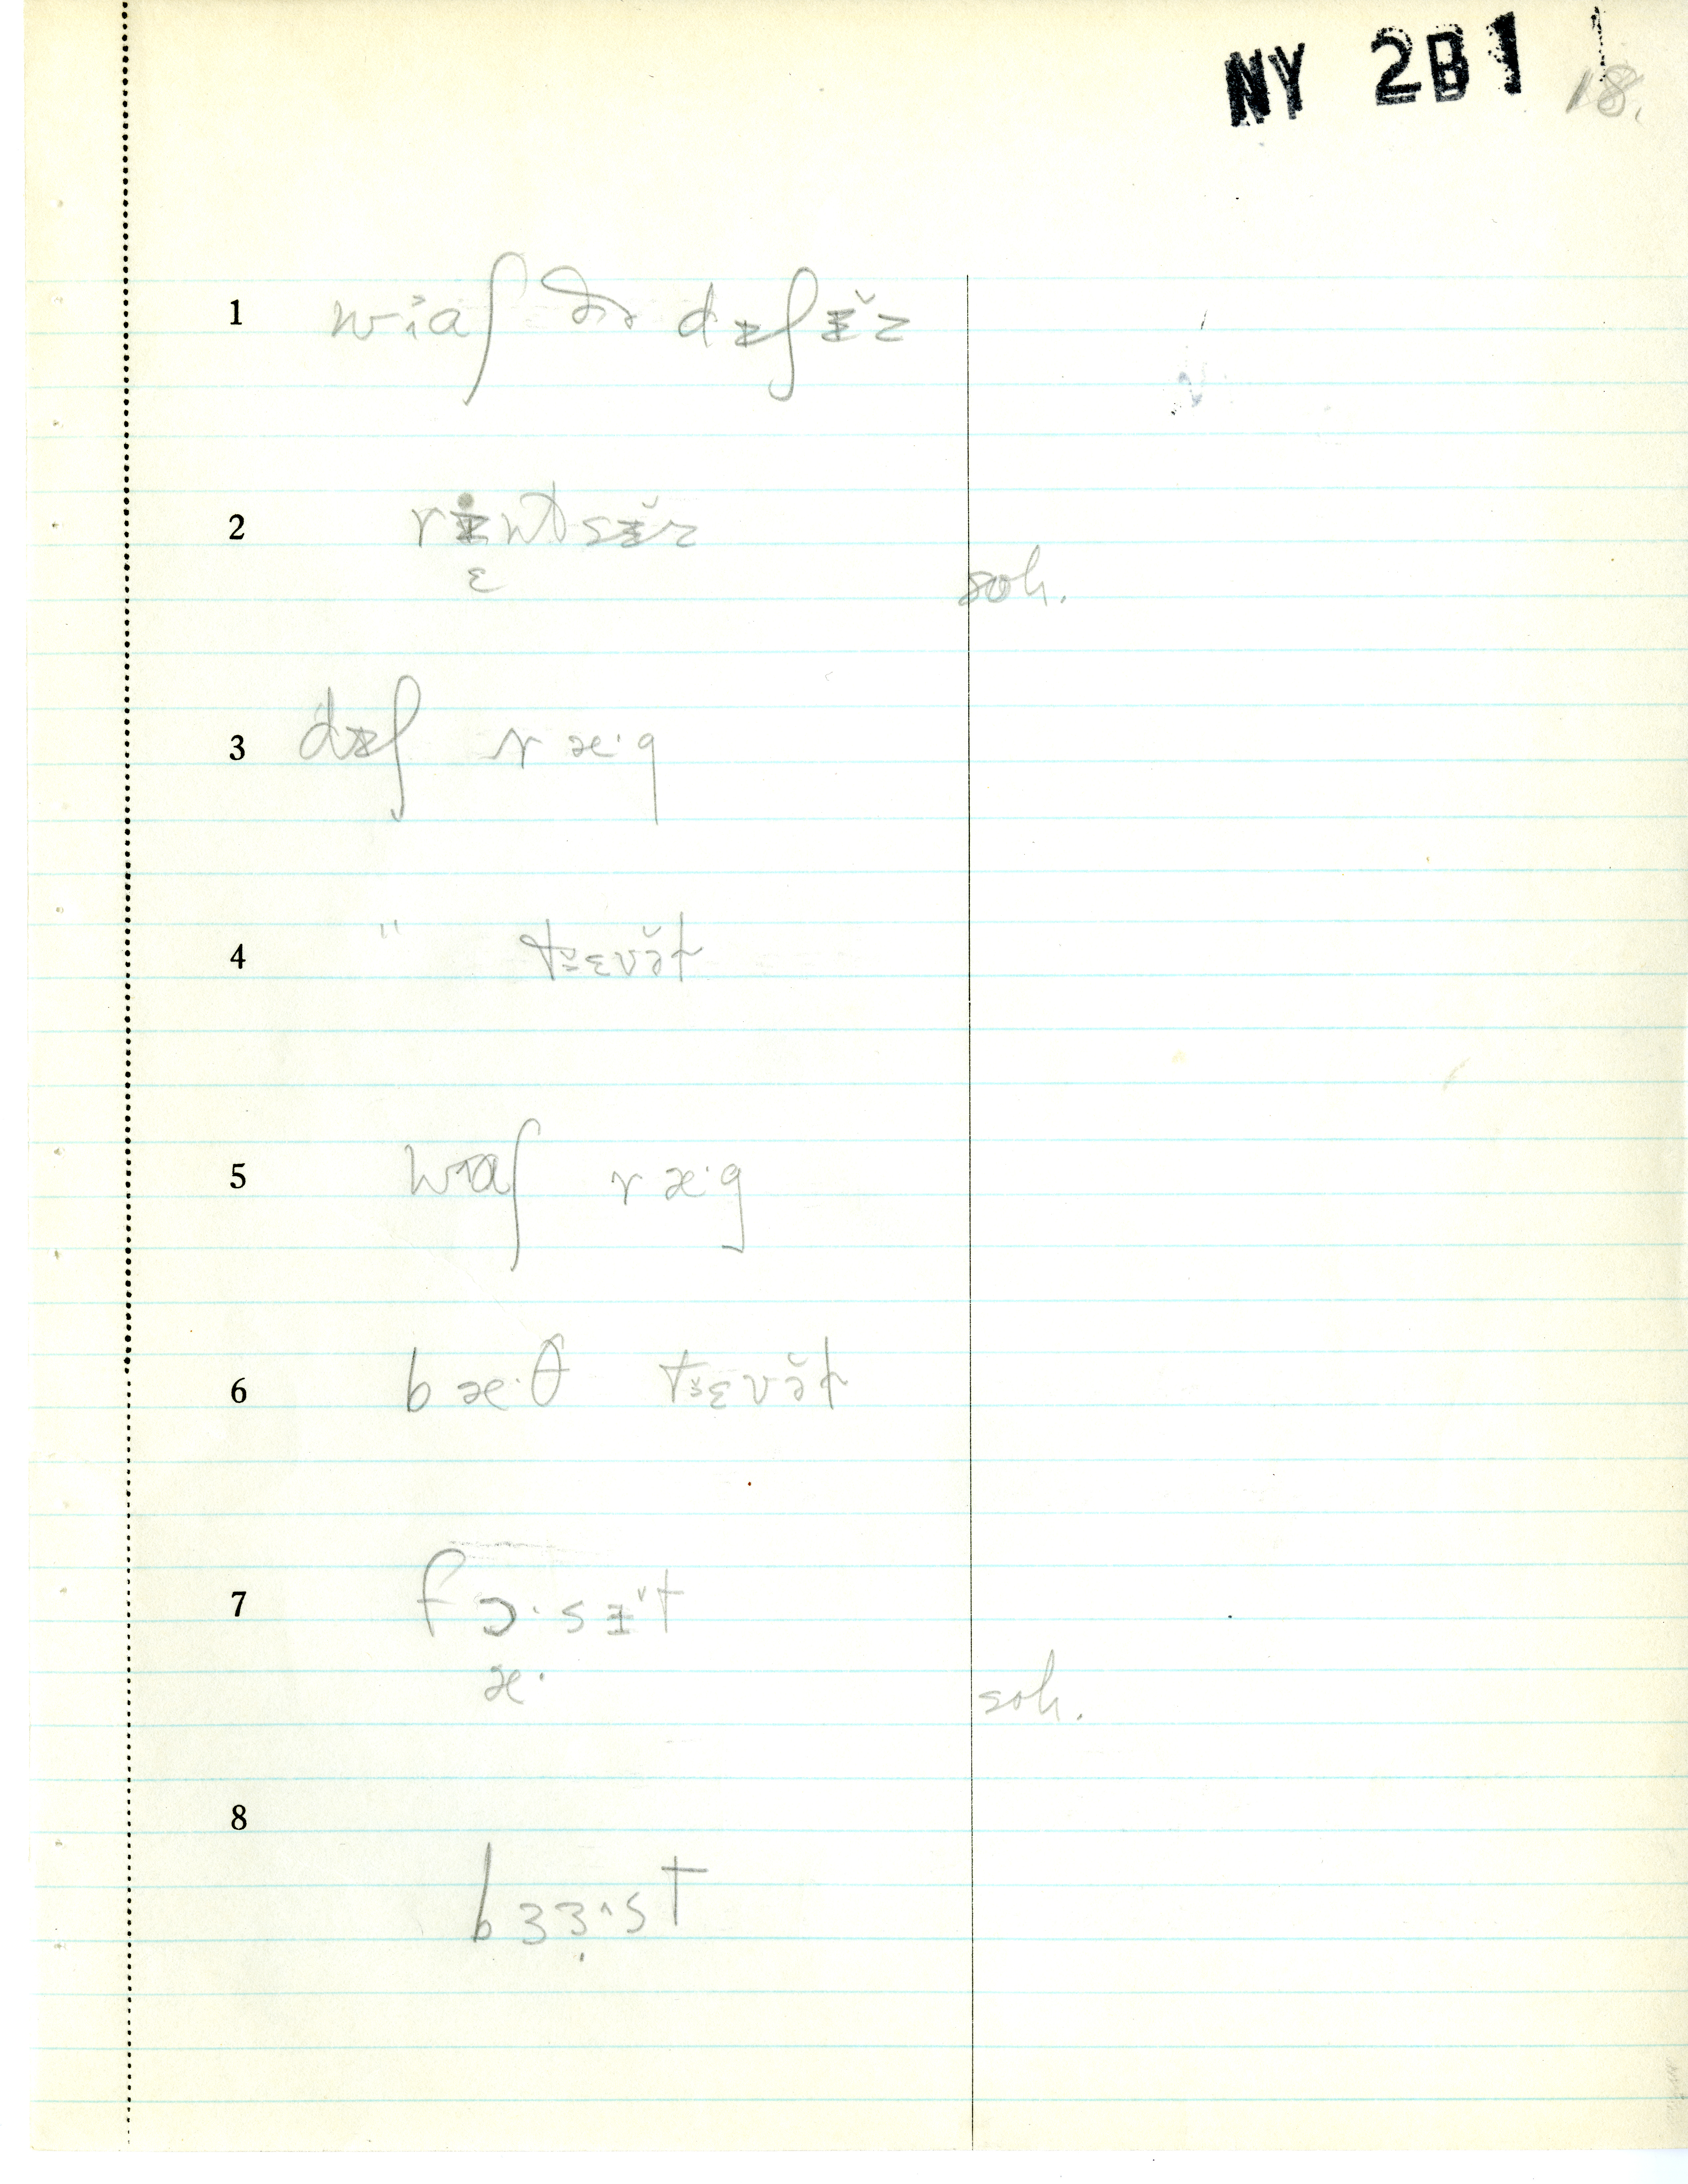 NY 2B1
18.
1 wɪaʃ ðə dɪʃɨ̆z
2 rɨntsɨ̆z
ɛ
soh.
3 dɪʃ ræ·g
4 " tɛvə̆t
5 wɪaʃ ræ·g
6 bæ·θ tɛvə̆t
7 fɔ·sɨ̆t
æ·
soh.
8
bɜɜ̣^st